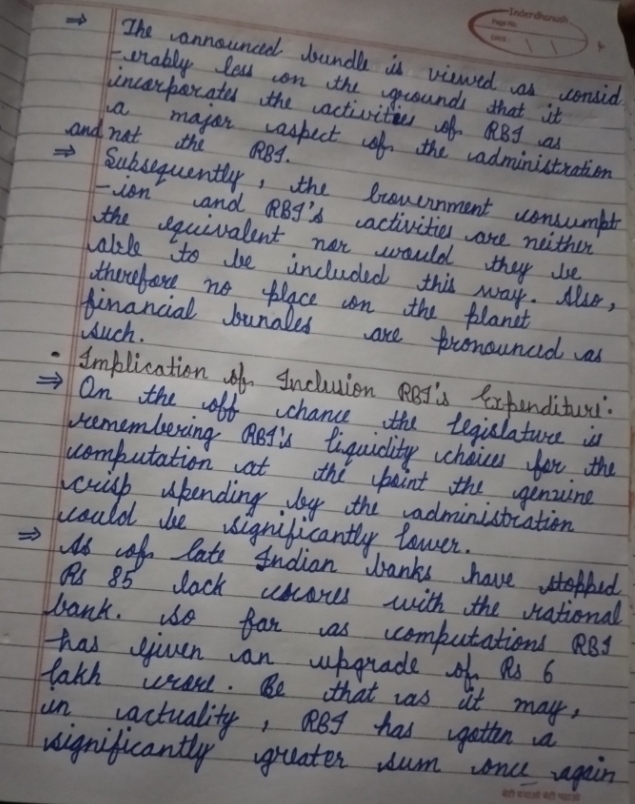 Inderdhanush
Page No.
Date: / /
⇒ The announced bundle is viewed as consid
-erably less on the grounds that it
incorporates the activities of RBI as
a major aspect of the administration
and not the RBI.
⇒ Subsequently, the Government consumpt
-ion and RBI's activities are neither
the equivalent nor would they be
able to be included this way. Also,
therefore no place on the planet
financial bundles are pronounced as
such.
• Implication of Inclusion RBI's Expenditure:
⇒ On the off chance the legislature is
remembering RBI's liquidity choices for the
computation at the point the genuine
crisp spending by the administration
could be significantly lower.
⇒ As of late Indian banks have stopped
Rs 85 lack crores with the national
bank. So far as computations RBI
has given an upgrade of Rs 6
lakh crore. Be that as it may,
in actuality, RBI has gotten a
significantly greater sum once again
बेटी बचाओ बेटी पढ़ाओ